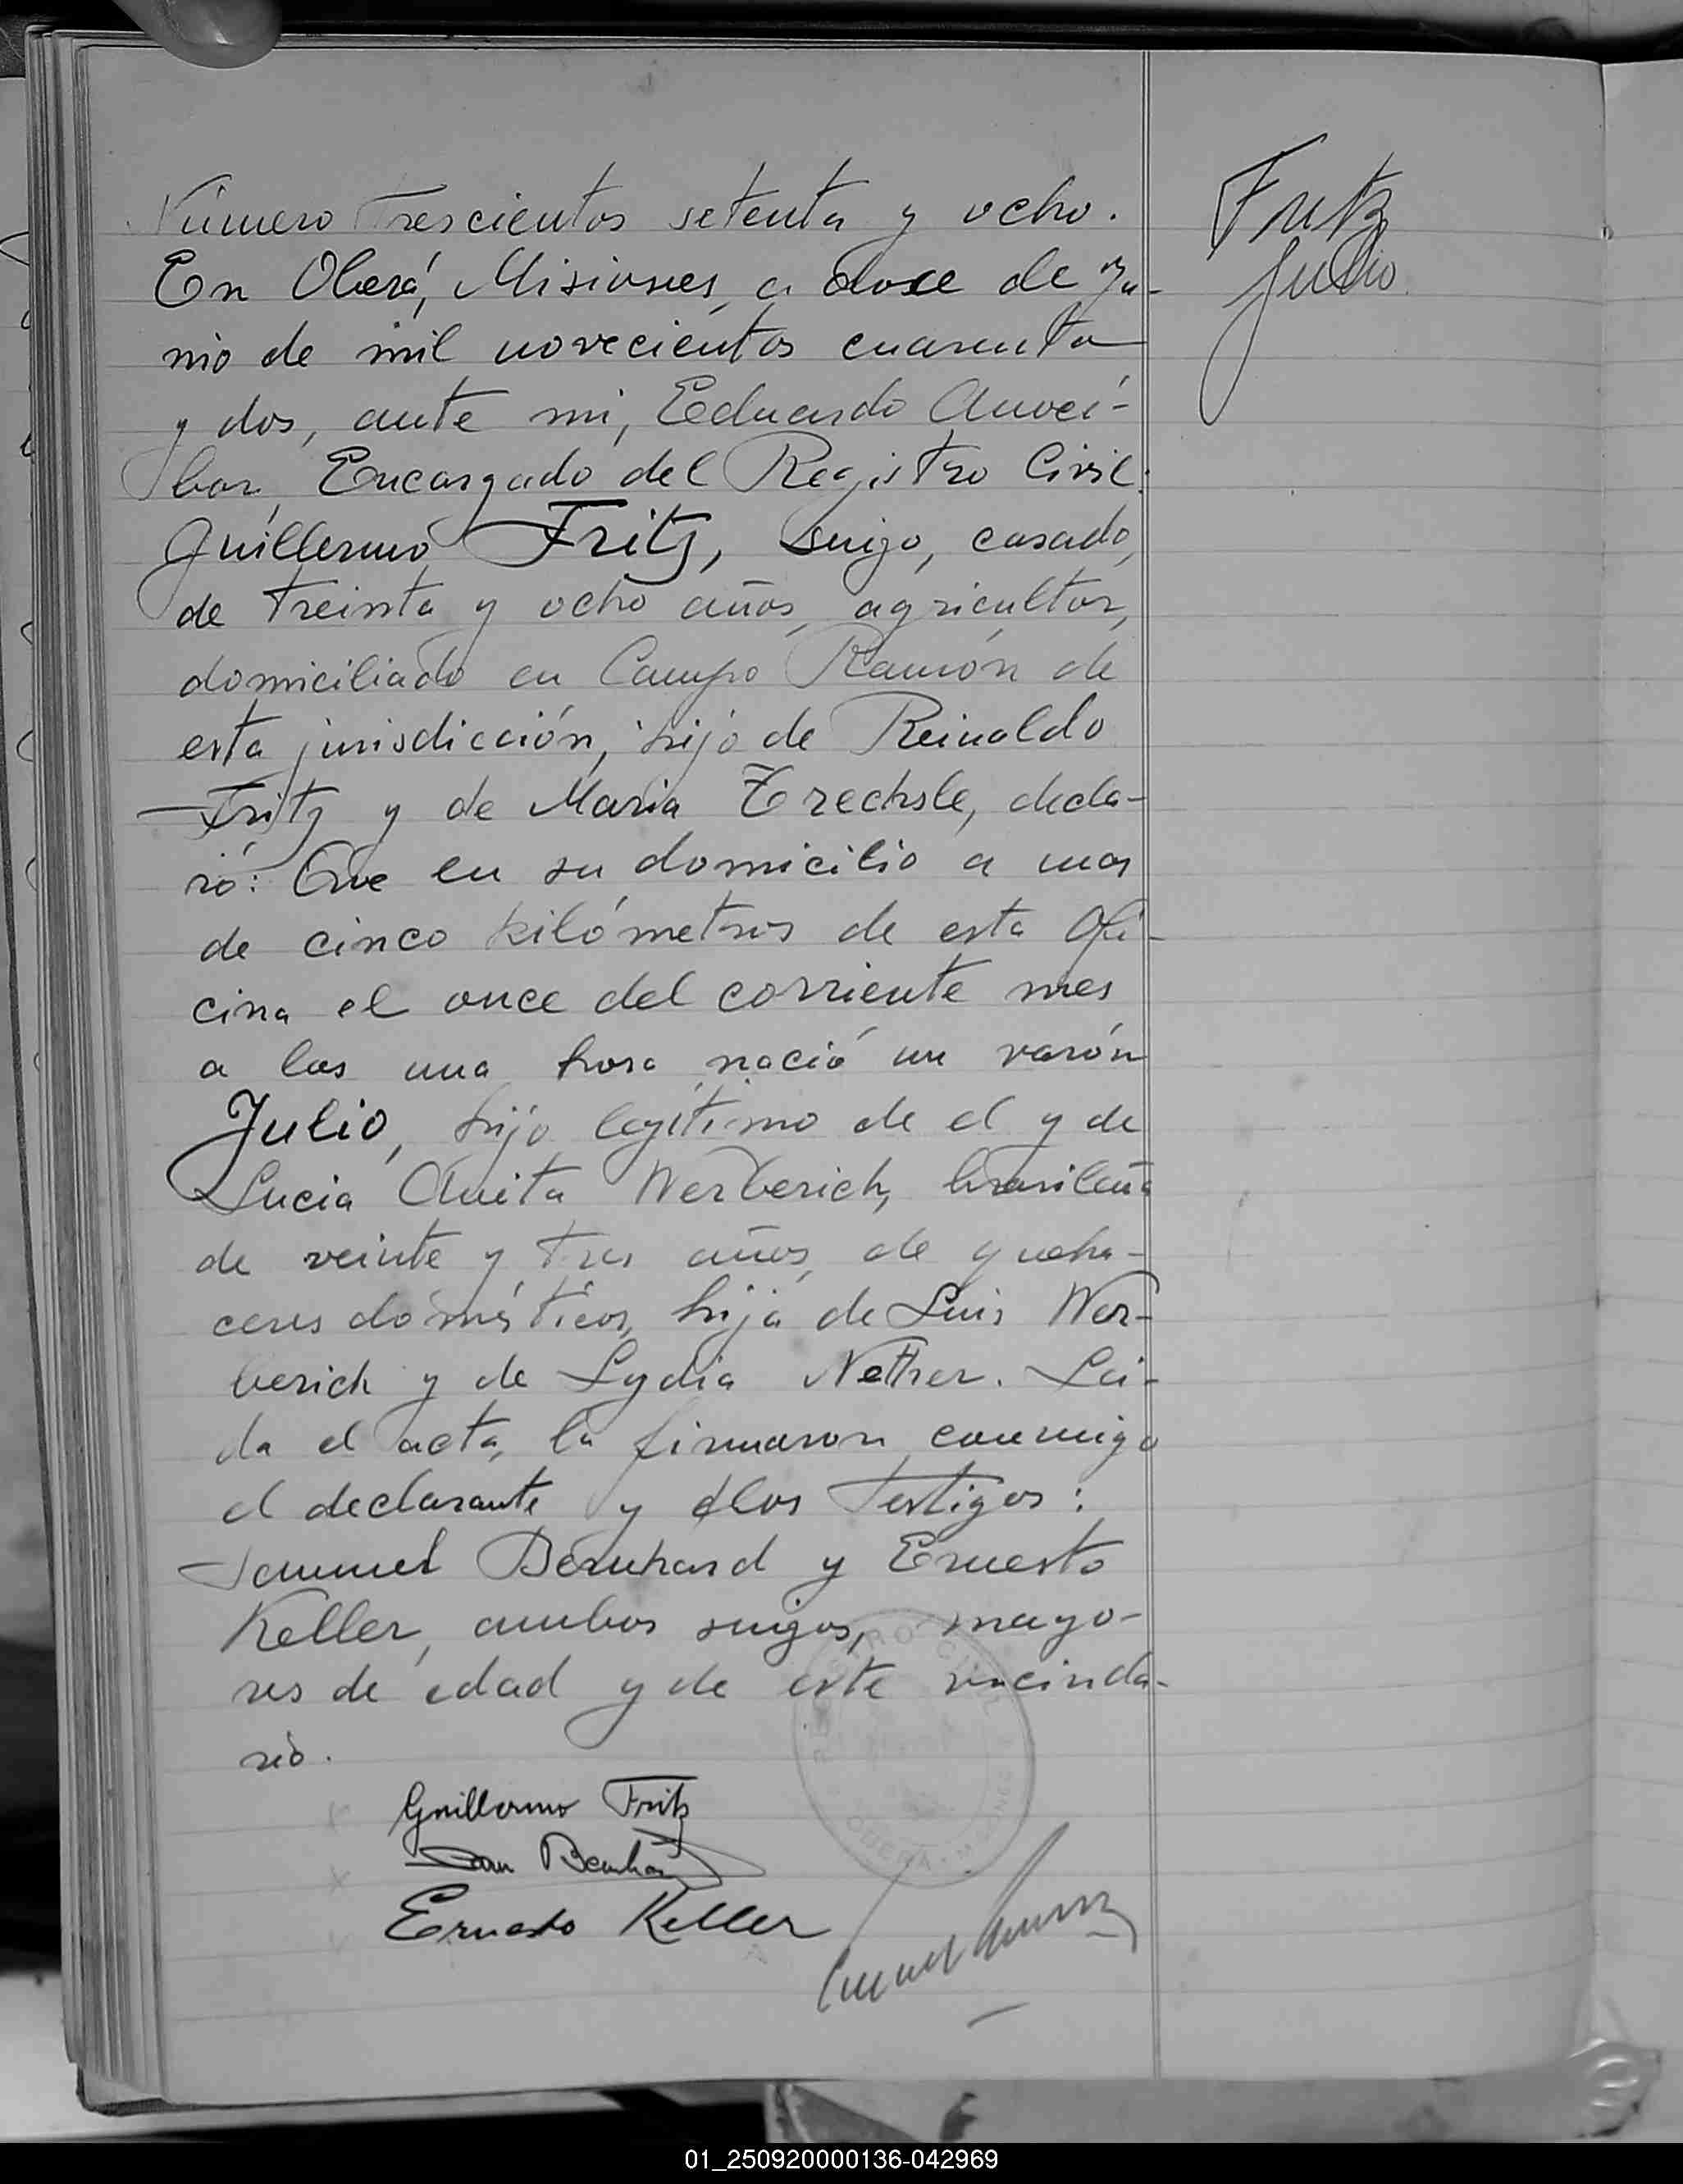 Número Trescientos setenta y ocho.
En Oberá, Misiones, a doce de Ju-
nio de mil novecientos cuarenta
y dos, ante mi, Eduardo Anocí-
bar, Encargado del Registro Civil:
Guillermo Fritz, suizo, casado,
de treinta y ocho años, agricultor,
domiciliado en Campo Ramón de
esta jurisdicción, hijo de Reinaldo
Fritz y de Maria Trechsle, decla-
ró: Que en su domicilio a mas
de cinco kilómetros de esta Ofi-
cina el once del corriente mes
a las una hora nació un varón
Julio, hijo legítimo de el y de
Lucia Anita Werberich, brasileña
de veinte y tres años, de queha-
ceres domésticos, hija de Luis Wer-
berich y de Lydia Nether. Lei-
da el acta, la firmaron conmigo
el declarante y los testigos:
Samuel Bernhard y Ernesto
Keller, ambos suizos, mayo-
res de edad y de este vecinda-
rio.
Guillermo Fritz
Sam Bernhard
Ernesto Keller
Fritz
Julio
REGISTRO CIVIL
OBERA - MISIONES
01_250920000136-042969